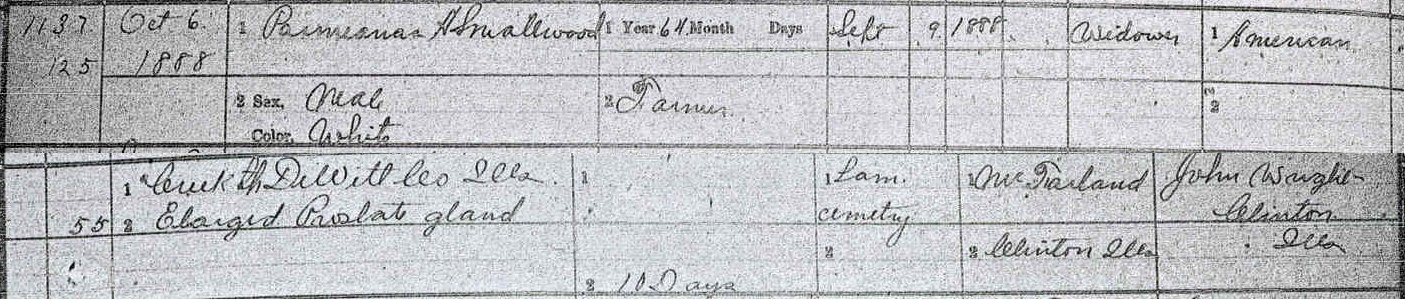 1137. Oct 6. 1 Parmeanas A Smallwood 1 Year 64 Month Days Sept 9 1888 Widower 1 American
125 1888
2 Sex, Male 2 Farmer 2
Color, White
1 Creek th DeWitt Co Ills. 1 1 Lam. 1 McFarland John Wright
55 2 Elarged Prostate gland cemetry Clinton
2 2 Clinton Ills Ills
2 10 Days